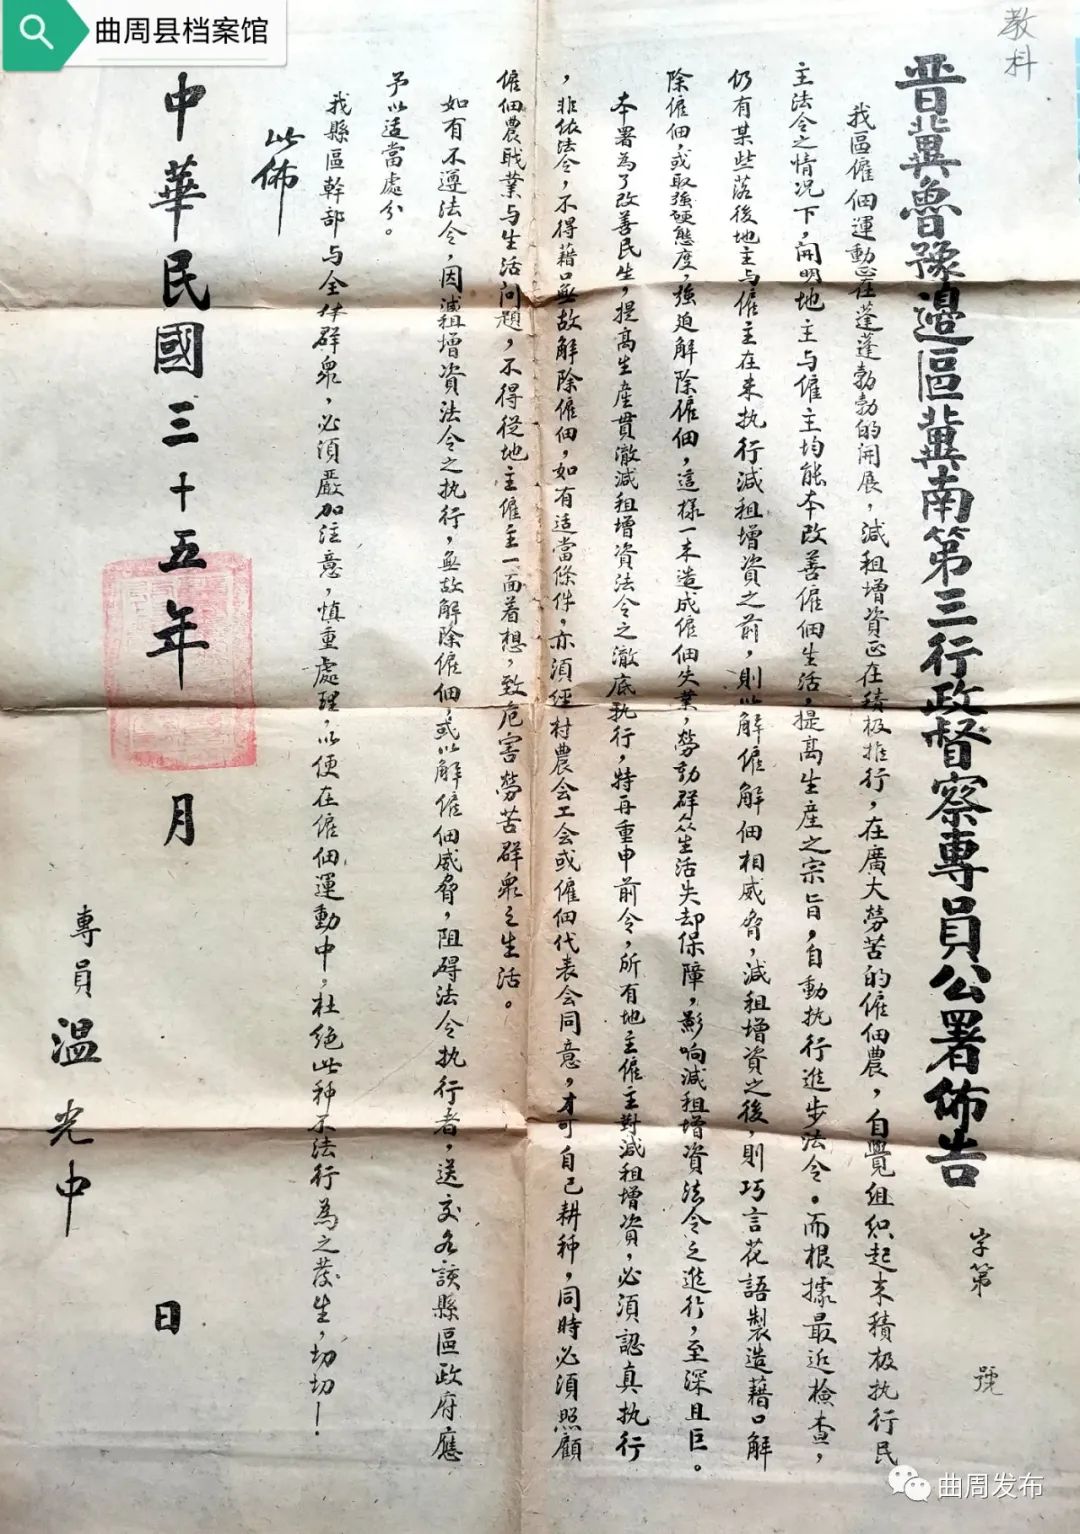 曲周县档案馆
教科
晋冀魯豫邊區冀南第三行政督察專員公署佈告
字第 號
我區僱佃運動正在蓬蓬勃勃的開展，減租增資正在積极推行，在廣大勞苦的僱佃農，自覺組织起来積极执行民
主法令之情况下，開明地主与僱主均能本改善僱佃生活，提高生產之宗旨，自動执行進步法令。而根據最近檢查，
仍有某些落後地主与僱主在未执行減租增資之前，則以解僱解佃相威脅，減租增資之後，則巧言花語製造藉口解
除僱佃，或取強硬態度，強迫解除僱佃，這様一来造成僱佃失業，勞動群众生活失却保障，影响減租增資法令之進行，至深且巨。
本署為了改善民生，提高生産貫澈減租增資法令之澈底执行，特再重申前令，所有地主僱主對減租增資，必須認真执行
，非依法令，不得藉口無故解除僱佃，如有适當條件，亦須經村農会工会或僱佃代表会同意，才可自己耕种，同時必須照顧
僱佃農职業与生活问題，不得從地主僱主一面着想，致危害勞苦群衆之生活。
如有不遵法令，因減租增資法令之执行，無故解除僱佃，或以解僱佃威脅，阻碍法令执行者，送交各該縣區政府應
予以适當處分。
我縣區幹部与全体群衆，必須嚴加注意，慎重處理，以便在僱佃運動中，杜绝此种不法行為之發生，切切！
此佈
中華民國三十五年 月 日
專員 溫光中
曲周发布